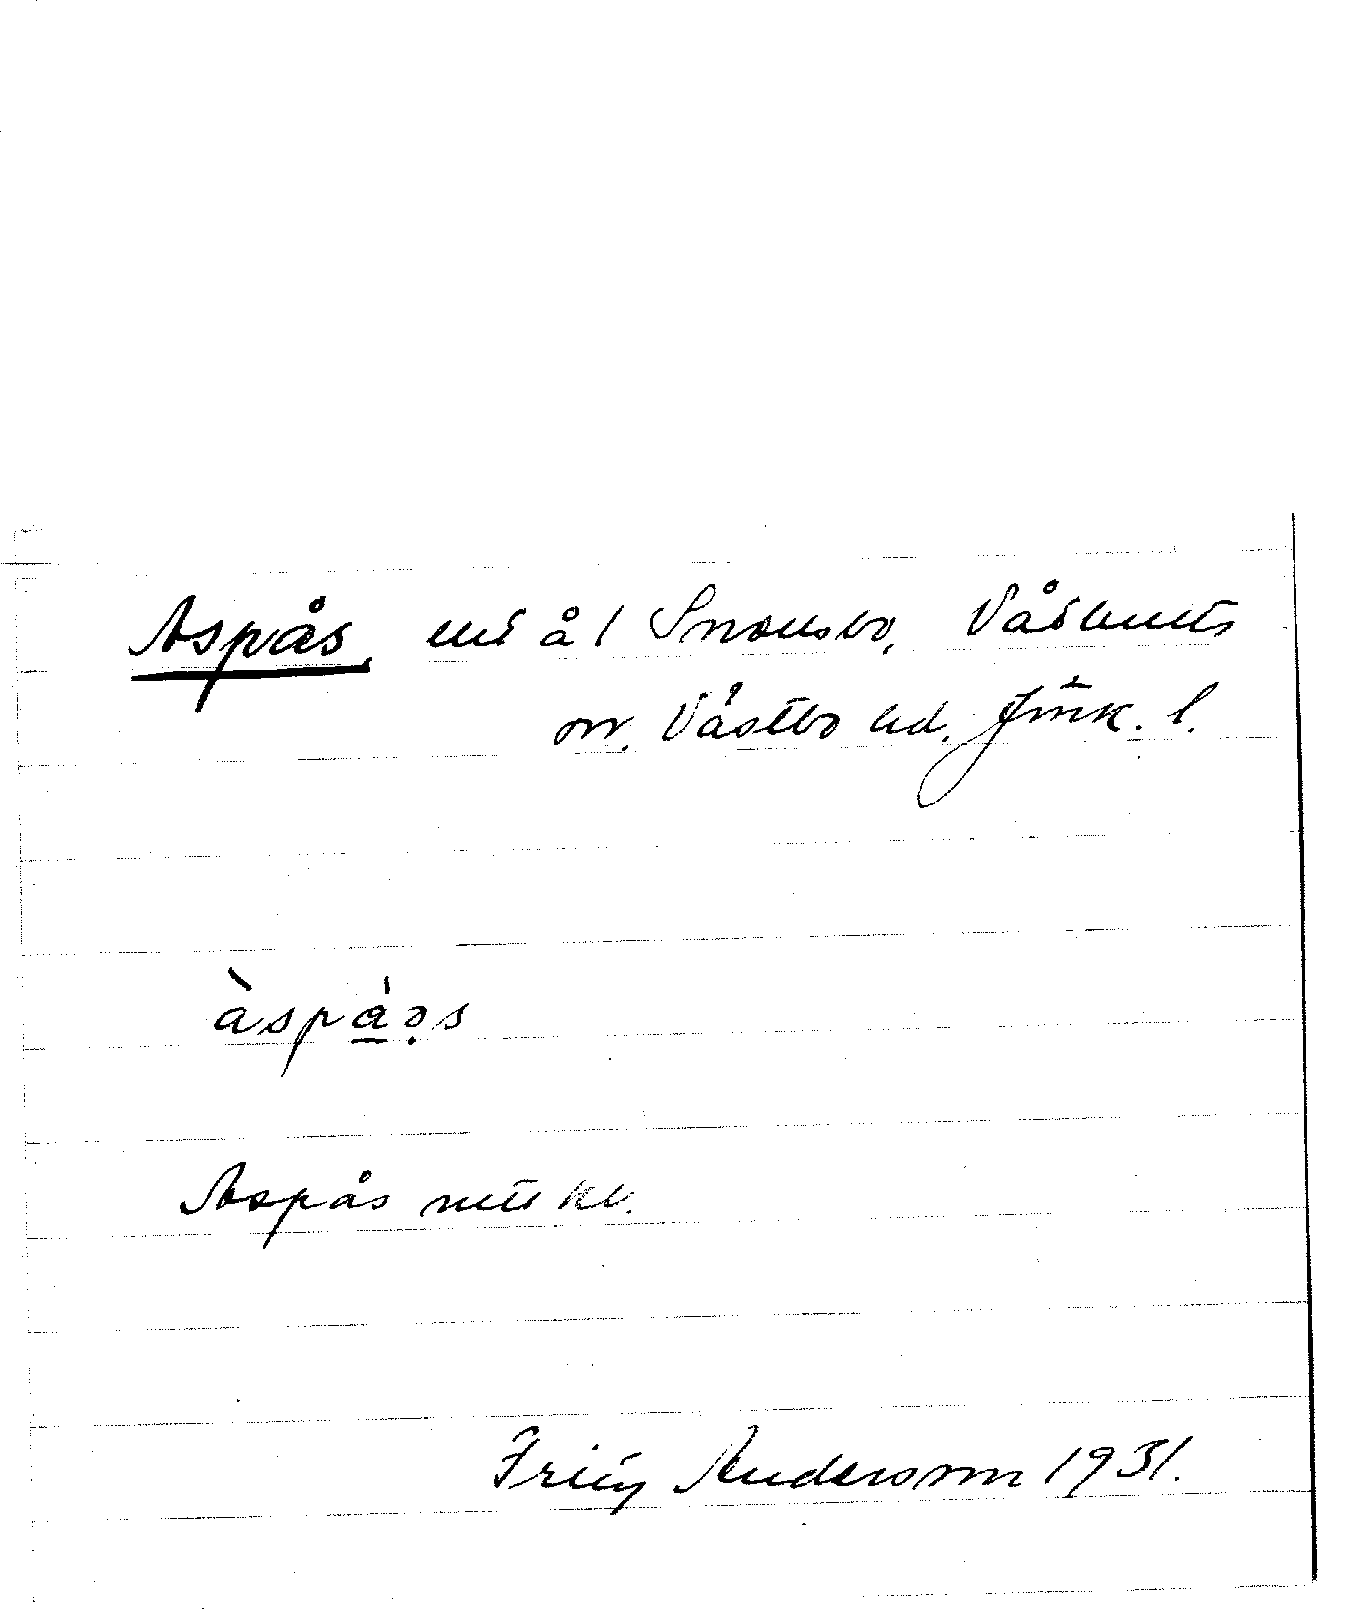 Aspås, und å i Snausbo, Våthults
sn. Västbo hd. Jönk. l.
àspá̱ə̣s
Aspås mtkl.
Fritz Andersson 1931.